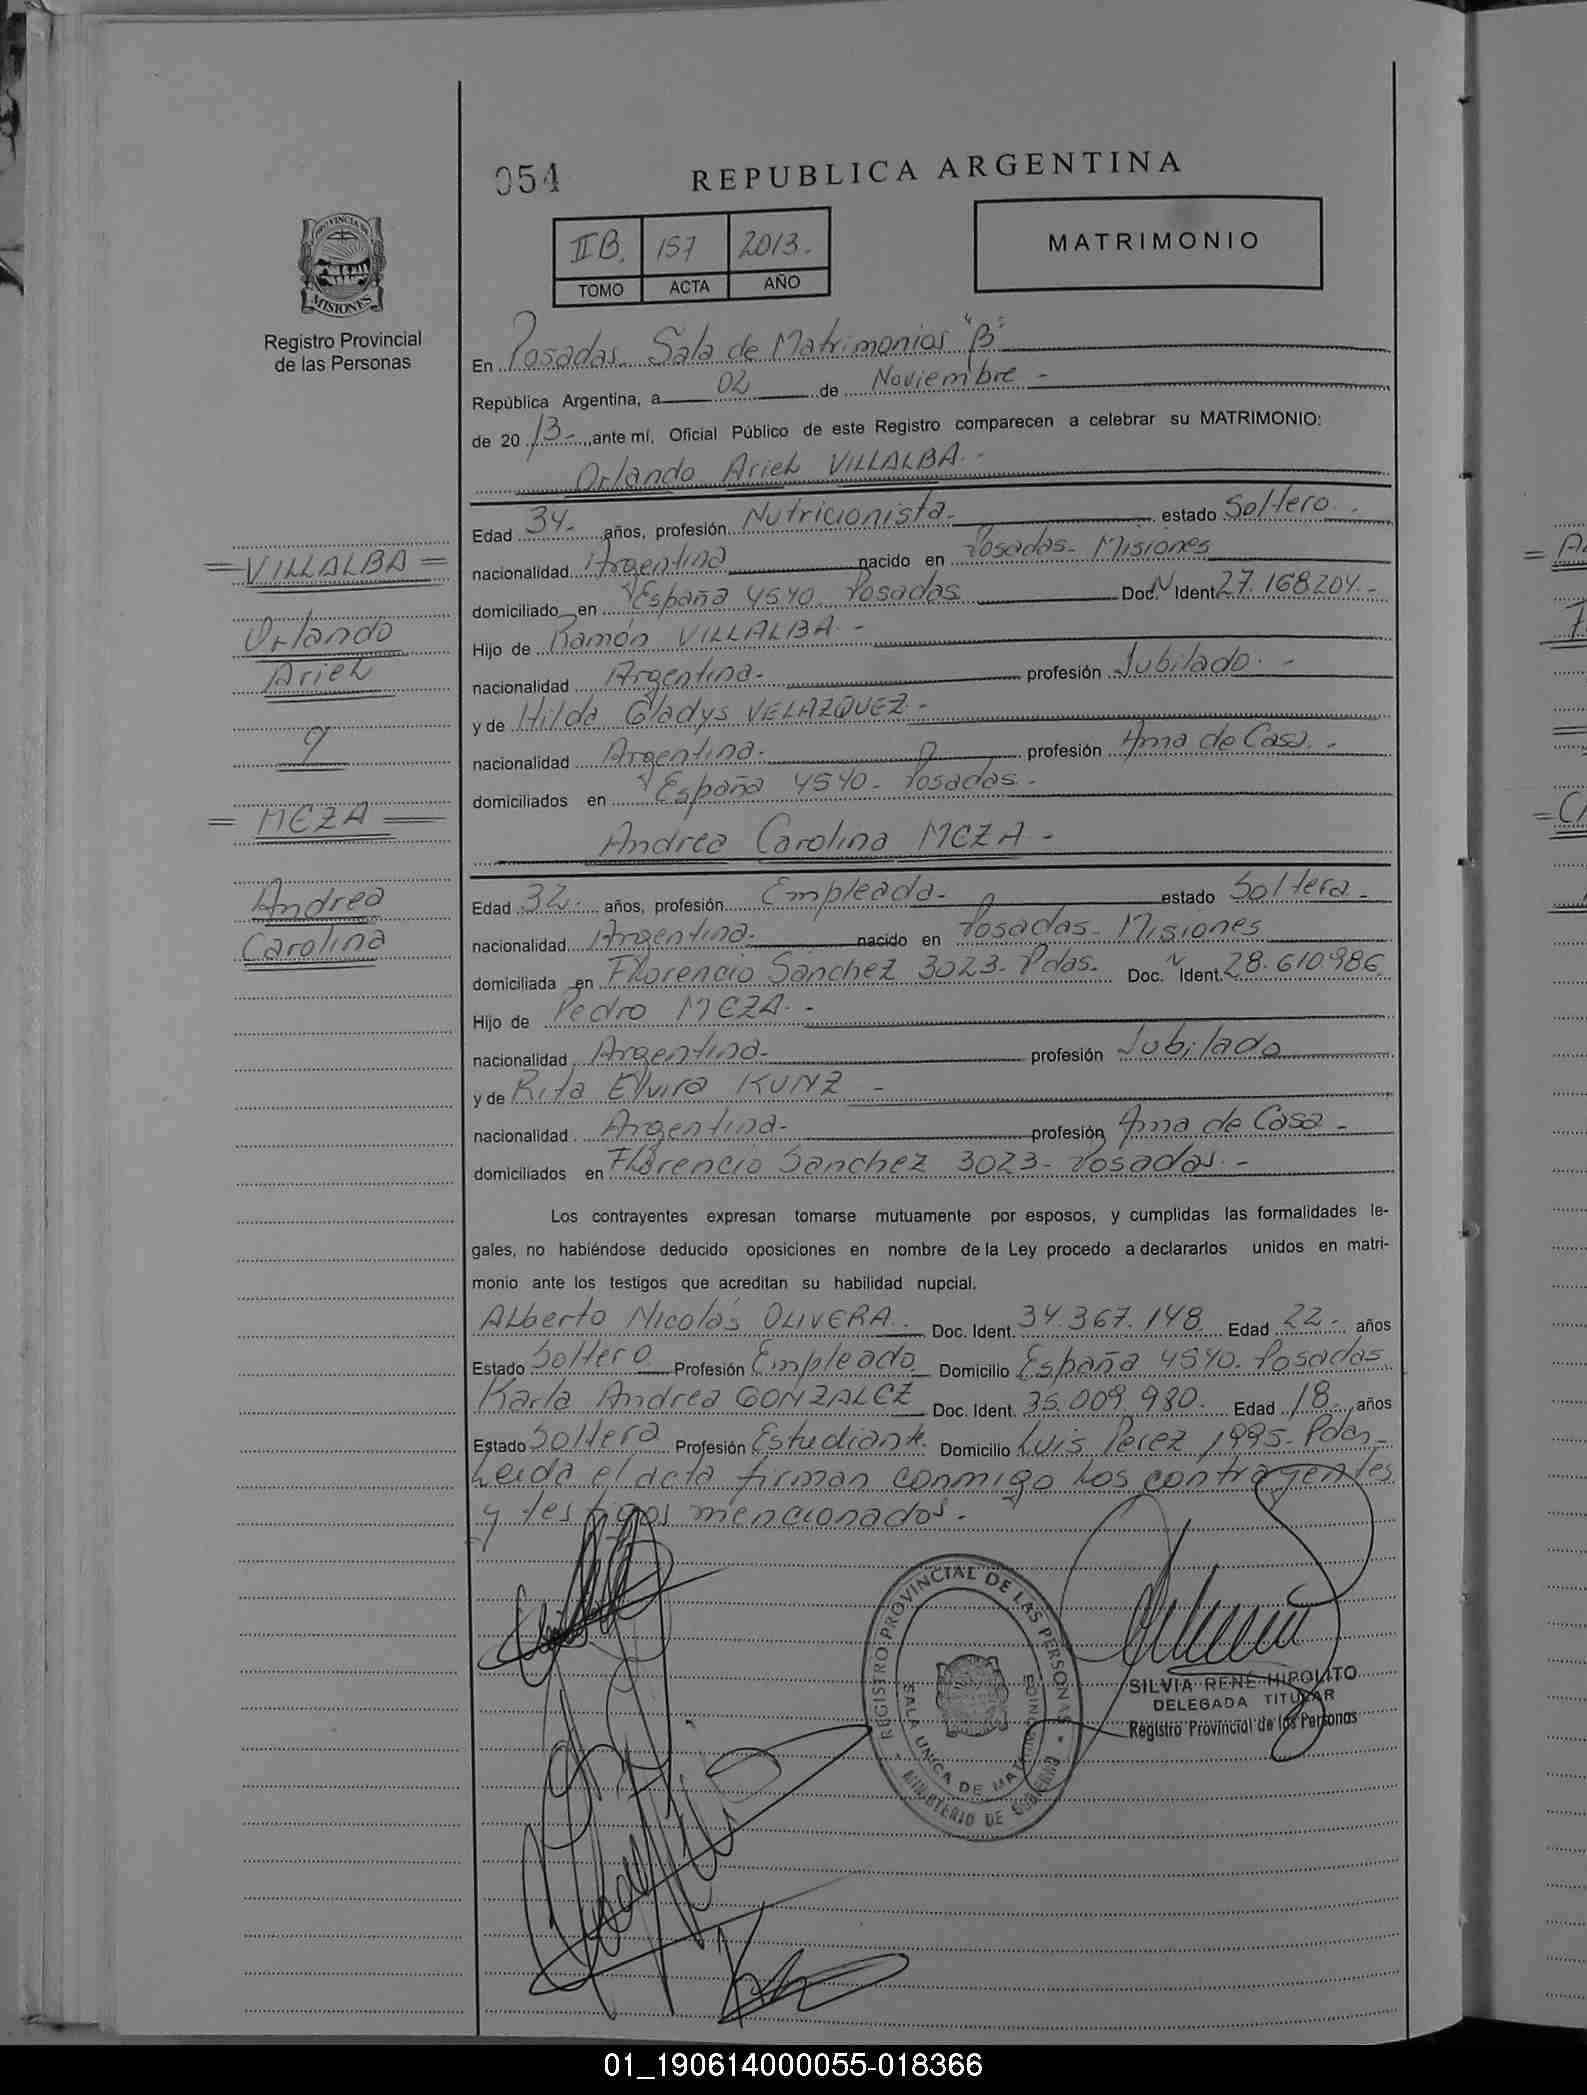 054
REPUBLICA ARGENTINA
PROVINCIA DE
MISIONES
Registro Provincial
de las Personas
II B. 157 2013.-
TOMO ACTA AÑO
MATRIMONIO
En Posadas. Sala de Matrimonios "B"
República Argentina, a 02 de Noviembre -
de 20 13.- ante mí, Oficial Público de este Registro comparecen a celebrar su MATRIMONIO:
Orlando Ariel VILLALBA.-
Edad 34.- años, profesión Nutricionista.- estado Soltero.-
nacionalidad Argentina nacido en Posadas- Misiones
domiciliado en España 4540. Posadas Doc. N Ident 27.168.204.-
Hijo de Ramón VILLALBA.-
nacionalidad Argentina.- profesión Jubilado.-
y de Hilda Gladys VELAZQUEZ.-
nacionalidad Argentina.- profesión Ama de Casa.-
domiciliados en España 4540.- Posadas.-
Andrea Carolina MEZA.-
Edad 32.- años, profesión Empleada.- estado Soltera.-
nacionalidad Argentina.- nacido en Posadas- Misiones
domiciliada en Florencio Sánchez 3023- Pdas. Doc. N Ident. 28.610.986
Hijo de Pedro MEZA.-
nacionalidad Argentina.- profesión Jubilado
y de Rita Elvira KUNZ -
nacionalidad Argentina.- profesión Ama de Casa -
domiciliados en Florencio Sanchez 3023- Posadas.-
Los contrayentes expresan tomarse mutuamente por esposos, y cumplidas las formalidades le-
gales, no habiéndose deducido oposiciones en nombre de la Ley procedo a declararlos unidos en matri-
monio ante los testigos que acreditan su habilidad nupcial.
Alberto Nicolás OLIVERA. Doc. Ident. 34.367.148. Edad 22.- años
Estado Soltero Profesión Empleado Domicilio España 4540. Posadas
Karla Andrea GONZALEZ Doc. Ident. 35.009.980. Edad 18. años
Estado Soltera Profesión Estudiante. Domicilio Luis Perez 1995- Pdas.-
Leida el acta firman conmigo los contrayentes
y testigos mencionados.-
= VILLALBA =
Orlando
Ariel
y
= MEZA =
Andrea
Carolina
REGISTRO PROVINCIAL DE LAS PERSONAS
SALA UNICA DE MATRIMONIOS
MINISTERIO DE GOBIERNO
SILVIA RENÉ HIPOLITO
DELEGADA TITULAR
Registro Provincial de las Personas
01_190614000055-018366